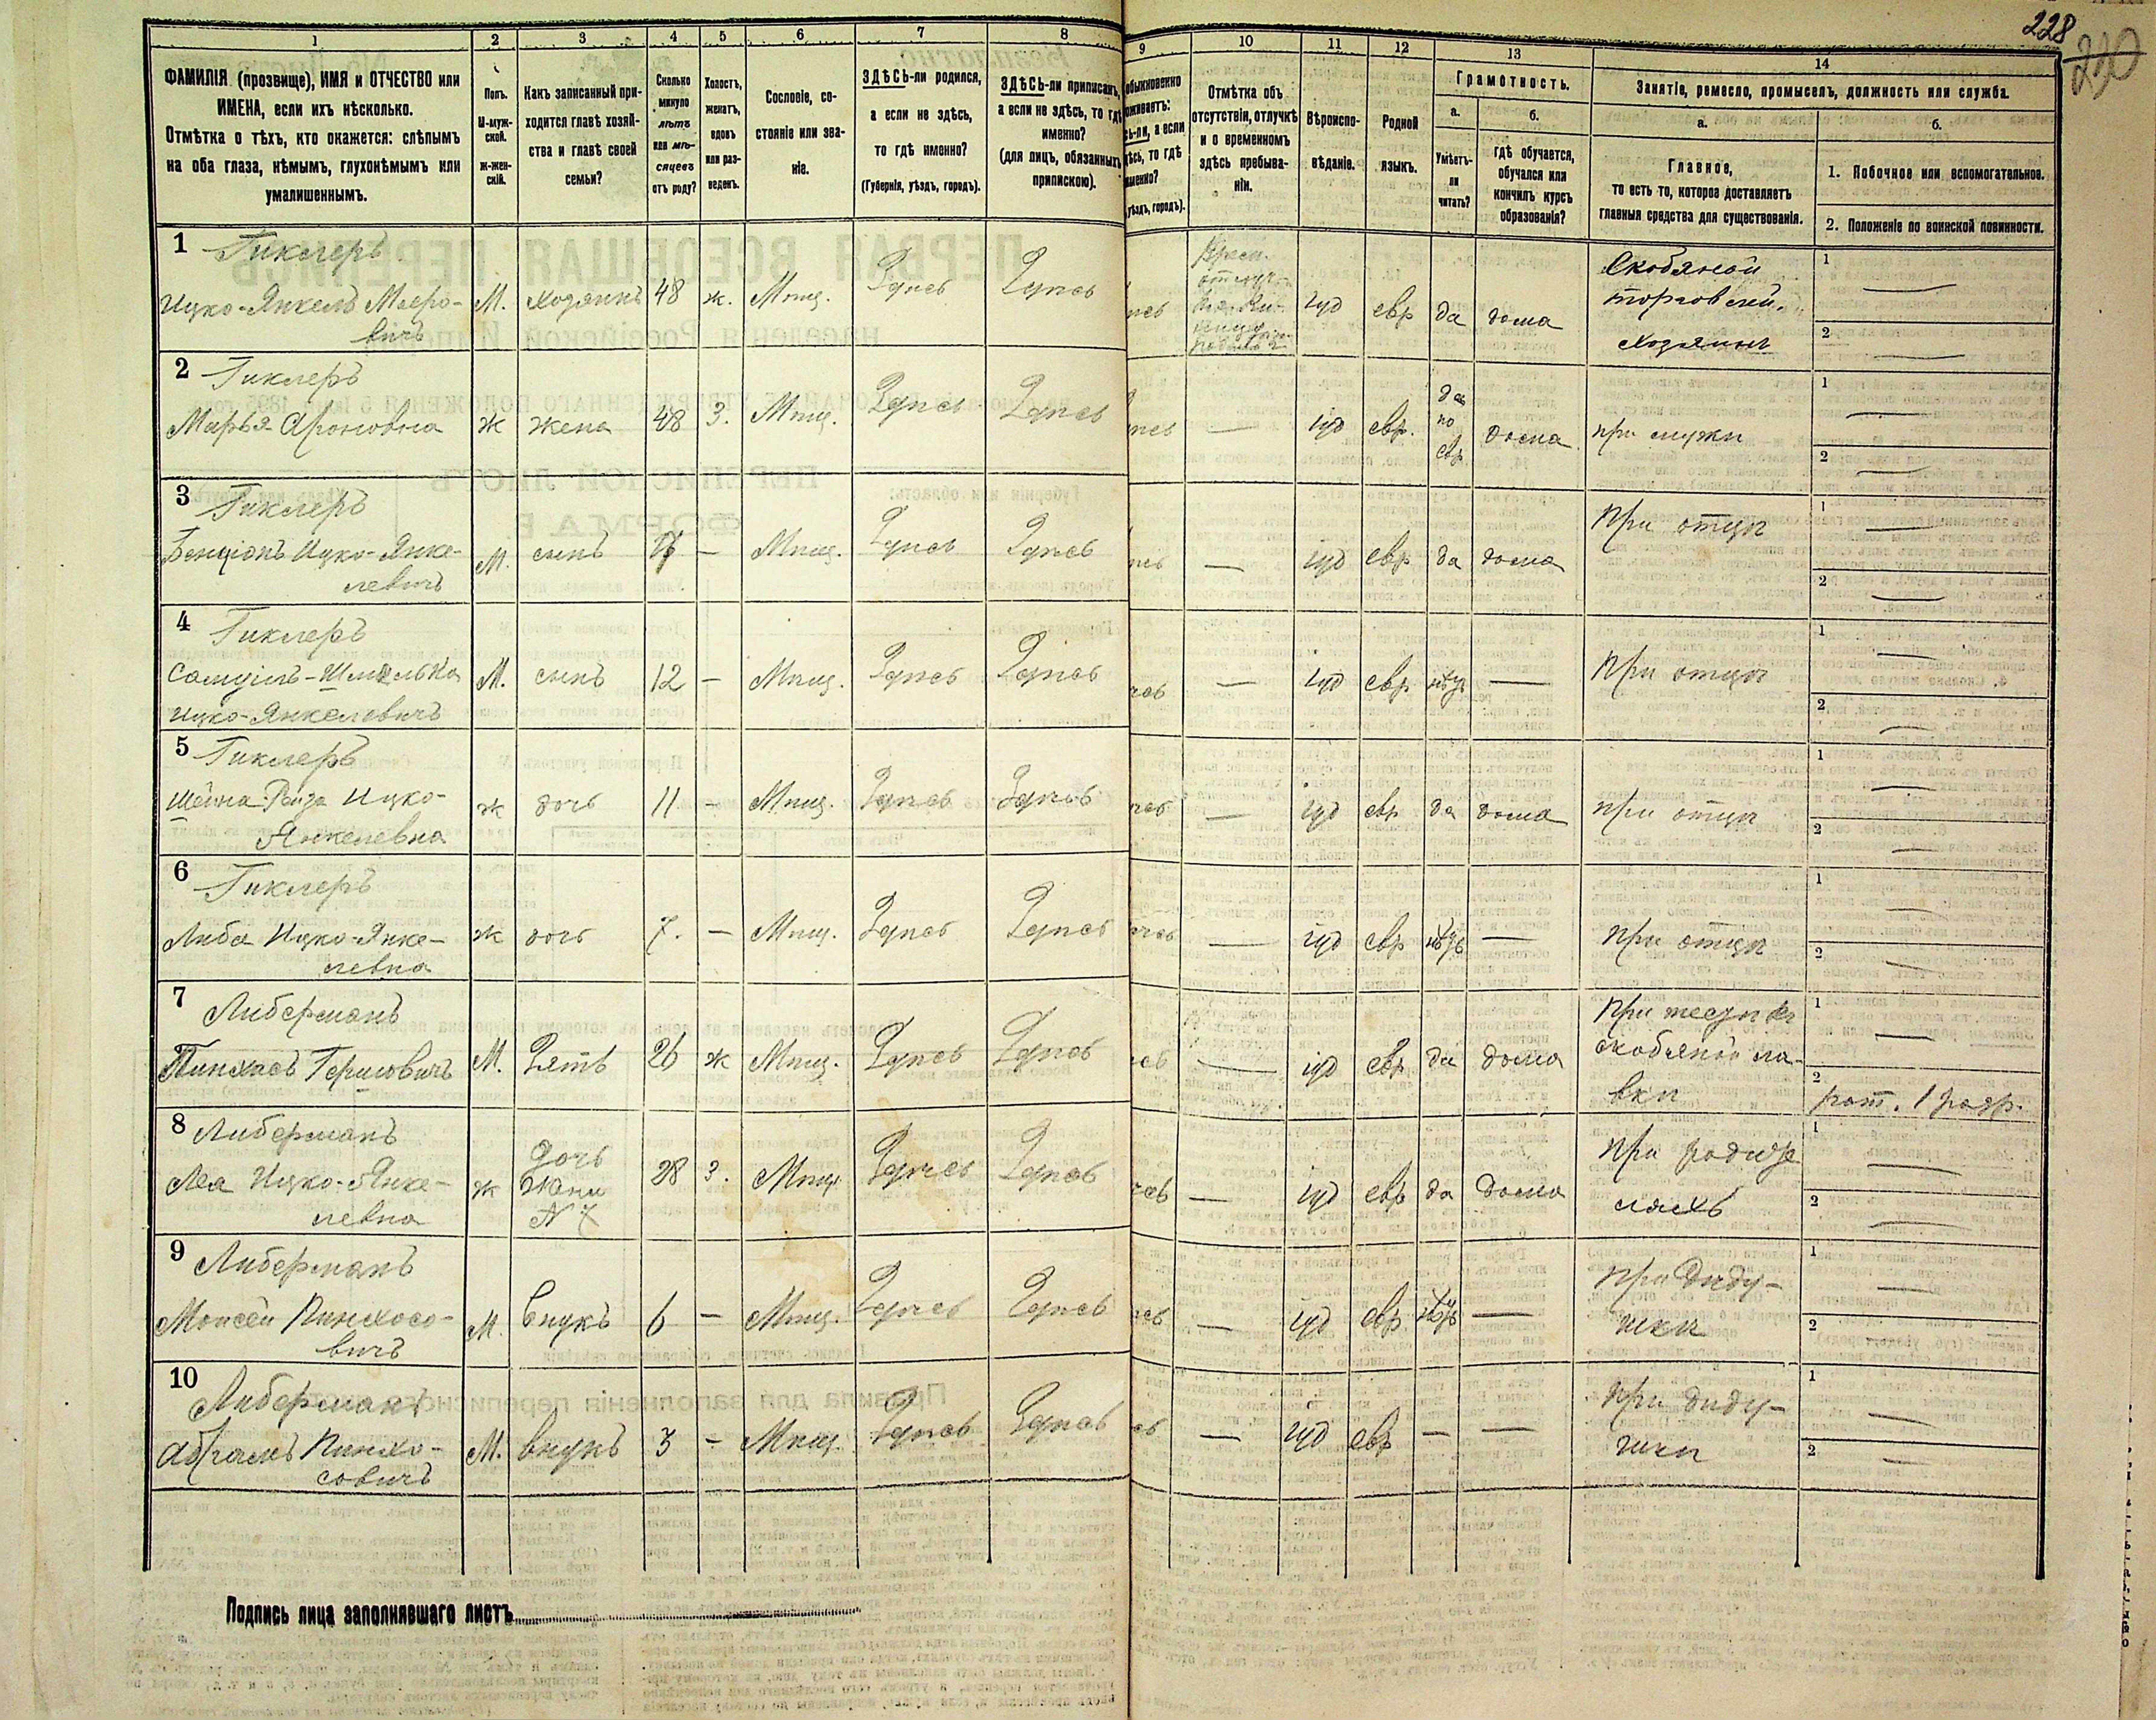 228
230
1 2 3 4 5 6 7 8 9 10 11 12 13 14
ФАМИЛІЯ (прозвище), ИМЯ и ОТЧЕСТВО или
ИМЕНА, если ихъ нѣсколько.
Отмѣтка о тѣхъ, кто окажется: слѣпымъ
на оба глаза, нѣмымъ, глухонѣмымъ или
умалишеннымъ.
Полъ.
М-муж-
ской.
ж-жен-
скій.
Какъ записанный при-
ходится главѣ хозяй-
ства и главѣ своей
семьи?
Сколько
минуло
лѣтъ
или мѣ-
сяцевъ
отъ роду?
Холостъ,
женатъ,
вдовъ
или раз-
веденъ.
Сословіе, со-
стояніе или зва-
ніе.
ЗДѢСЬ-ли родился,
а если не здѣсь,
то гдѣ именно?
(Губернія, уѣздъ, городъ).
ЗДѢСЬ-ли приписанъ,
а если не здѣсь, то гдѣ
именно?
(для лицъ, обязанныхъ
припискою).
обыкновенно
оживаетъ:
сь-ли, а если
ѣсь, то гдѣ
менно?
уѣздъ, городъ).
Отмѣтка объ
отсутствіи, отлучкѣ
и о временномъ
здѣсь пребыва-
ніи.
Вѣроиспо-
вѣданіе.
Родной
языкъ.
Грамотность.
а.
Умѣетъ-
ли
читать?
б.
гдѣ обучается,
обучался или
кончилъ курсъ
образованія?
Занятіе, ремесло, промыселъ, должность или служба.
а.
Главное,
то есть то, которое доставляетъ
главныя средства для существованія.
б.
1. Побочное или вспомогательное.
2. Положеніе по воинской повинности.
1 Гиклеръ
Ицко-Янкель Мееро-
вичъ
М. хозяинъ 48 ж. Мѣщ. Здѣсь Здѣсь
іуд евр да дома
Скобяной
торговлей
хозяинъ
1 —
2 —
2 Гиклеръ
Марья Ароновна
ж жена 48 З. Мѣщ. Здѣсь Здѣсь
— іуд евр. да
по
евр
дома при мужѣ
1 —
2 —
3 Гиклеръ
Бенціонъ Ицко-Янке-
левичъ
М. сынъ — Мѣщ. Здѣсь Здѣсь
— іуд евр да дома при отцѣ
1 —
2 —
4 Гиклеръ
Самуилъ-Шмилько
Ицко-Янкелевичъ
М. сынъ 12 — Мѣщ. Здѣсь Здѣсь
— іуд евр нѣтъ — при отцѣ
1 —
2 —
5 Гиклеръ
Шейна-Рейза Ицко-
Янкелевна
ж дочь 11 — Мѣщ. Здѣсь Здѣсь
— іуд евр да дома при отцѣ
1 —
2 —
6 Гиклеръ
Либа Ицко-Янке-
левна
ж дочь 7. — Мѣщ. Здѣсь Здѣсь
— іуд евр нѣтъ — при отцѣ
1 —
2 —
7 Либерманъ
Пинхасъ Гершовичъ
М. Зять 26 ж Мѣщ. Здѣсь Здѣсь
— іуд евр да дома
При тестѣ въ
скобяной ла-
вкѣ
1 —
2
рат. 1 разр.
8 Либерманъ
Лея Ицко-Янке-
левна
ж
Дочь
Жена
N 7
28 З. Мѣщ Здѣсь Здѣсь
— іуд евр да дома
при родите
ляхъ
1 —
2 —
9 Либерманъ
Моисей Пинхосо-
вичъ
М. Внукъ 6 — Мѣщ. Здѣсь Здѣсь
— іуд евр нѣтъ —
при дѣду-
шкѣ
1 —
2 —
10 Либерманъ
Абрамъ Пинхо-
совичъ
М. внукъ 3 — Мѣщ. Здѣсь Здѣсь
— іуд евр — —
при дѣду-
шкѣ
1 —
2 —
Подпись лица заполнявшаго листъ